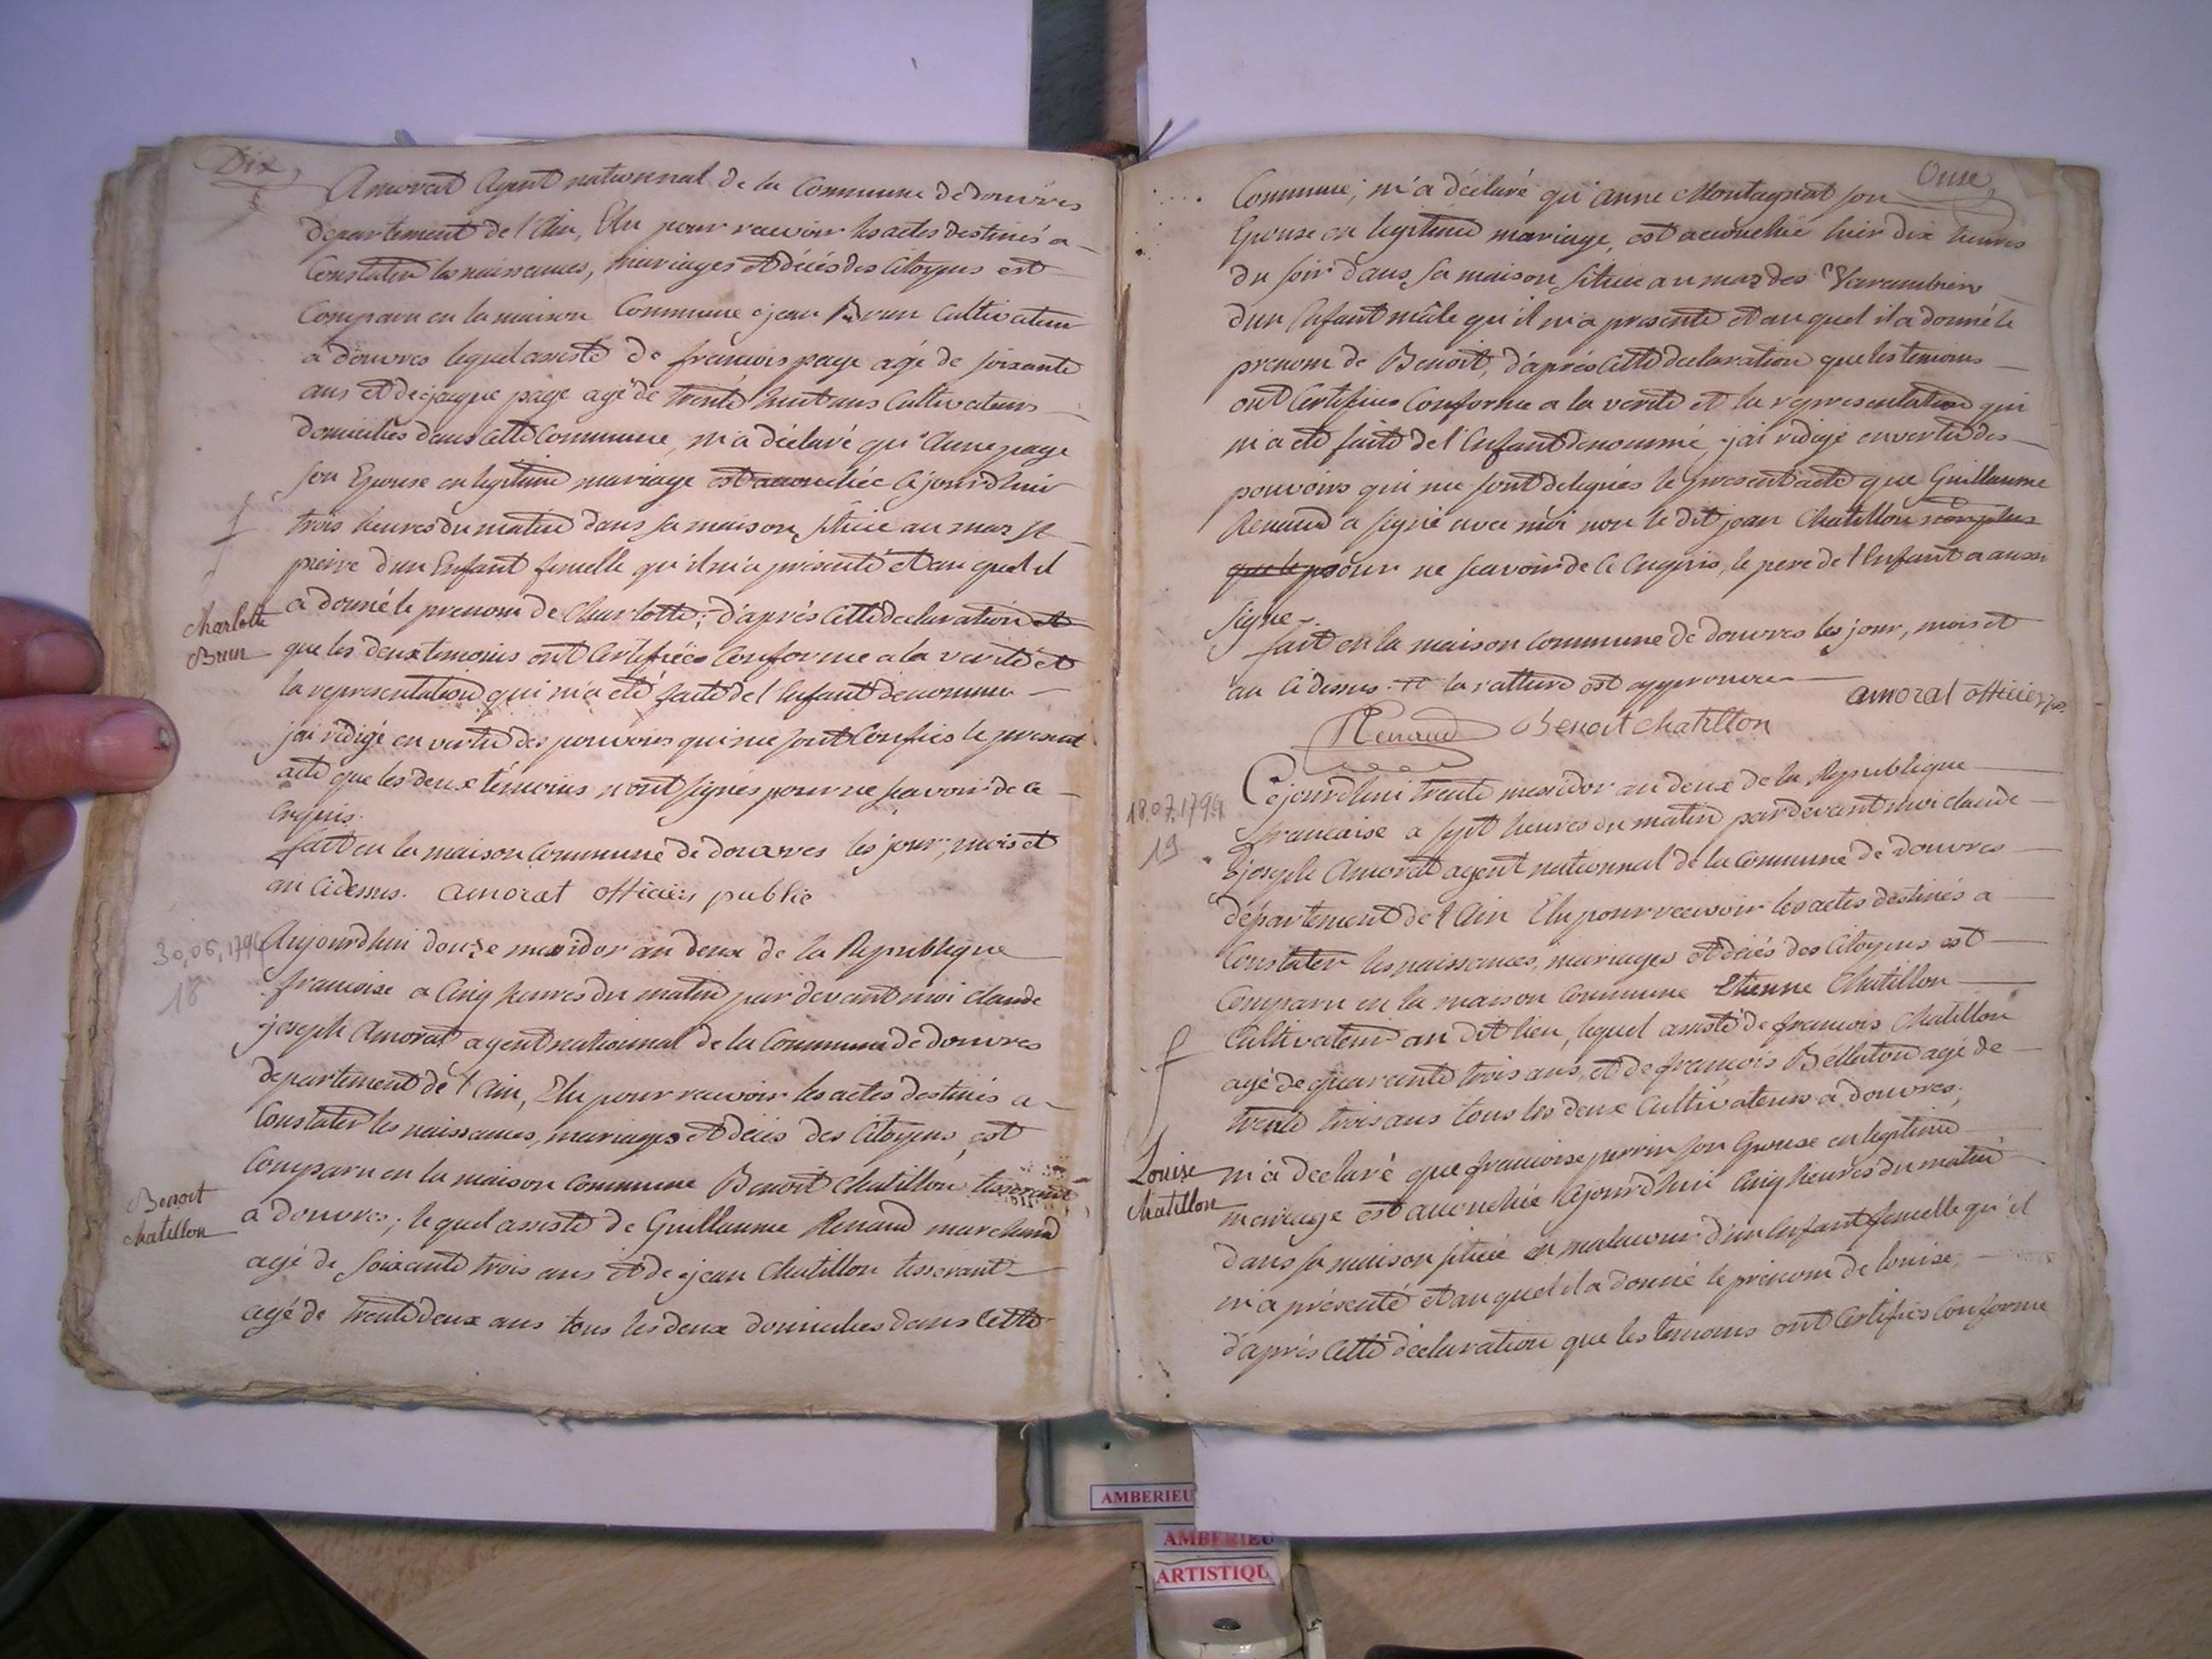 Dix
Amorat Agent nationnal de la Commune de douvres
departement de l'Ain, Elu pour recevoir les actes destinés a
Constater les naissances, mariages et décès des Citoyens est
Comparu en la maison Commune jean Brun Cultivateur
a douvres lequel assisté de francois page agé de soixante
ans et de jacque page agé de trente huit ans Cultivateurs
domiciliés dans cette Commune, m'a déclaré qu'Anne page
son Epouse en legitime mariage est accouchée Cejourdhui
trois heures du matin dans sa maison située au mas st
pierre d'un Enfant femelle qu'il m'a présenté et au quel il
a donné le prenom de Charlotte; d'après cette declaration et
Charlotte
Brun
que les deux temoins ont Certifiées Conforme a la verité et
la representation qui m'a été faite de l'Enfant denommé
j'ai rédigé en vertu des pouvoirs qui me sont Confiés le present
acte que les deux témoins n'ont signés pour ne scavoir de ce
Enquis.
fait en la maison Commune de douvres les jour, mois et
an cidessus. amorat officier public
30,06,1794
18
Aujourdhui douze messidor an deux de la Republique
francoise a Cinq heures du matin par devant moi claude
joseph Amorat agent nationnal de la Commune de douvres
departement de l'Ain, Elu pour recevoir les actes destinés a
Constater les naissances, mariages et décès des Citoyens, est
Comparu en la maison Commune Benoit Chatillon tisserant
Benoit
chatillon
a douvres; lequel assisté de Guillaume Renaud marchand
agé de soixante trois ans et de jean Chatillon tisserant
agé de trente deux ans tous les deux domiciliés dans cette
Onse
Commune, m'a déclaré qu'anne Montagnat son
Epouse en legitime mariage, est accouchée hier dix heures
du soir dans sa maison située au mas des
d'un Enfant mâle qu'il m'a presenté et au quel il a donné le
prenom de Benoit, d'après cette declaration que les temoins
ont Certifiés Conforme a la verité et la representation qui
m'a été faite de l'Enfant denommé, j'ai rédigé en vertu des
pouvoirs qui me sont delegués le present acte que Guillaume
Renaud a signé avec moi non le dit jean Chatillon non plus
que le p pour ne scavoir de ce Enquis, le pere de l'Enfant a aussi
signé.
fait en la maison Commune de douvres les jour, mois et
an cidessus. la rature est approuvée
amorat officier p.
Renaud Benoit chatillon
18,07,1794
19
Cejourdhui trente messidor an deux de la Republique
francaise a sept heures du matin pardevant moi claude
joseph Amorat agent nationnal de la Commune de douvres
département de l'Ain Elu pour recevoir les actes destinés a
Constater les naissances, mariages et décés des Citoyens est
Comparu en la maison Commune Etienne Chatillon
Cultivateur au dit lieu, lequel assisté de francois Chatillon
agé de quarante trois ans, et de françois Bellaton agé de
trente trois ans tous les deux Cultivateurs a douvres;
Louise
chatillon
m'a declaré que francoise perrin son Epouse en legitime
mariage est accouchée Cejourdhui Cinq heures du matin
dans sa maison située en d'un Enfant femelle qu'il
m'a présenté et au quel il a donné le prénom de louise,
d'après cette déclaration que les temoins ont Certifiés Conforme
AMBERIEU
AMBERIEU
ARTISTIQU